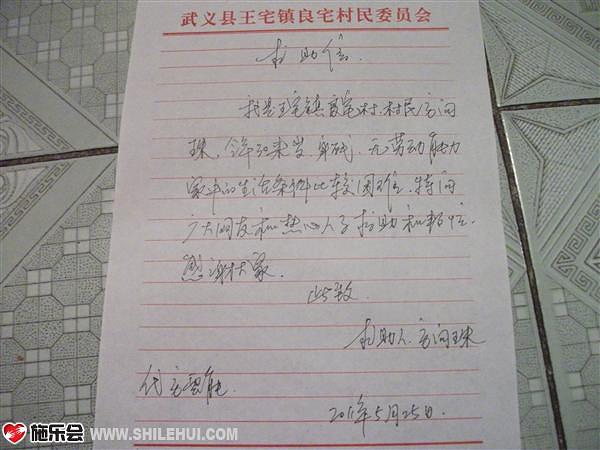 武义县王宅镇良宅村民委员会
求助信
我是王宅镇良宅村.村民
珠,今年 岁 无劳动能力
家中的生活条件比较困难.特向
广大网友和热心人士 助和帮忙.
感谢大家.
此致
求助人
代
2011年5月25日
施乐会 WWW.SHILEHUI.COM